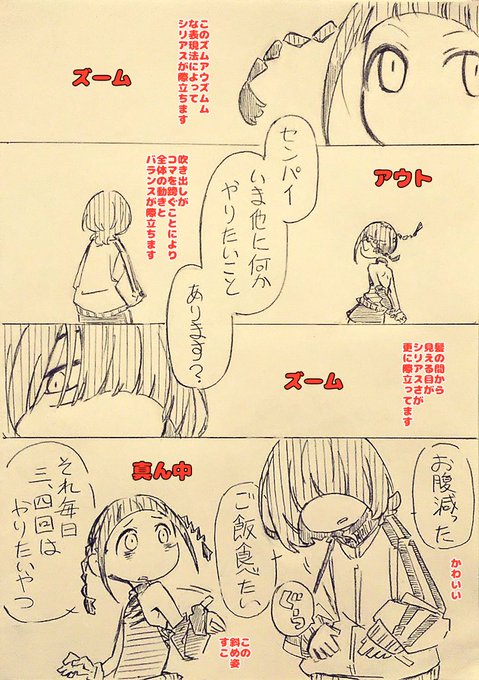 このズムアウズムム
な表現法によって
シリアスが際立ちます
ズーム
アウト
センパイ
いま他に何か
やりたいこと
あります?
吹き出しが
コマを跨ぐことにより
全体の動きと
バランスが際立ちます
髪の間から
見える目が
シリアスさが
更に際立ってます
ズーム
真ん中
お腹減った
ご飯食べたい
かわいい
ぐぅ
それ毎日
三、四回は
やりたいやつ
この
斜め姿
すこ